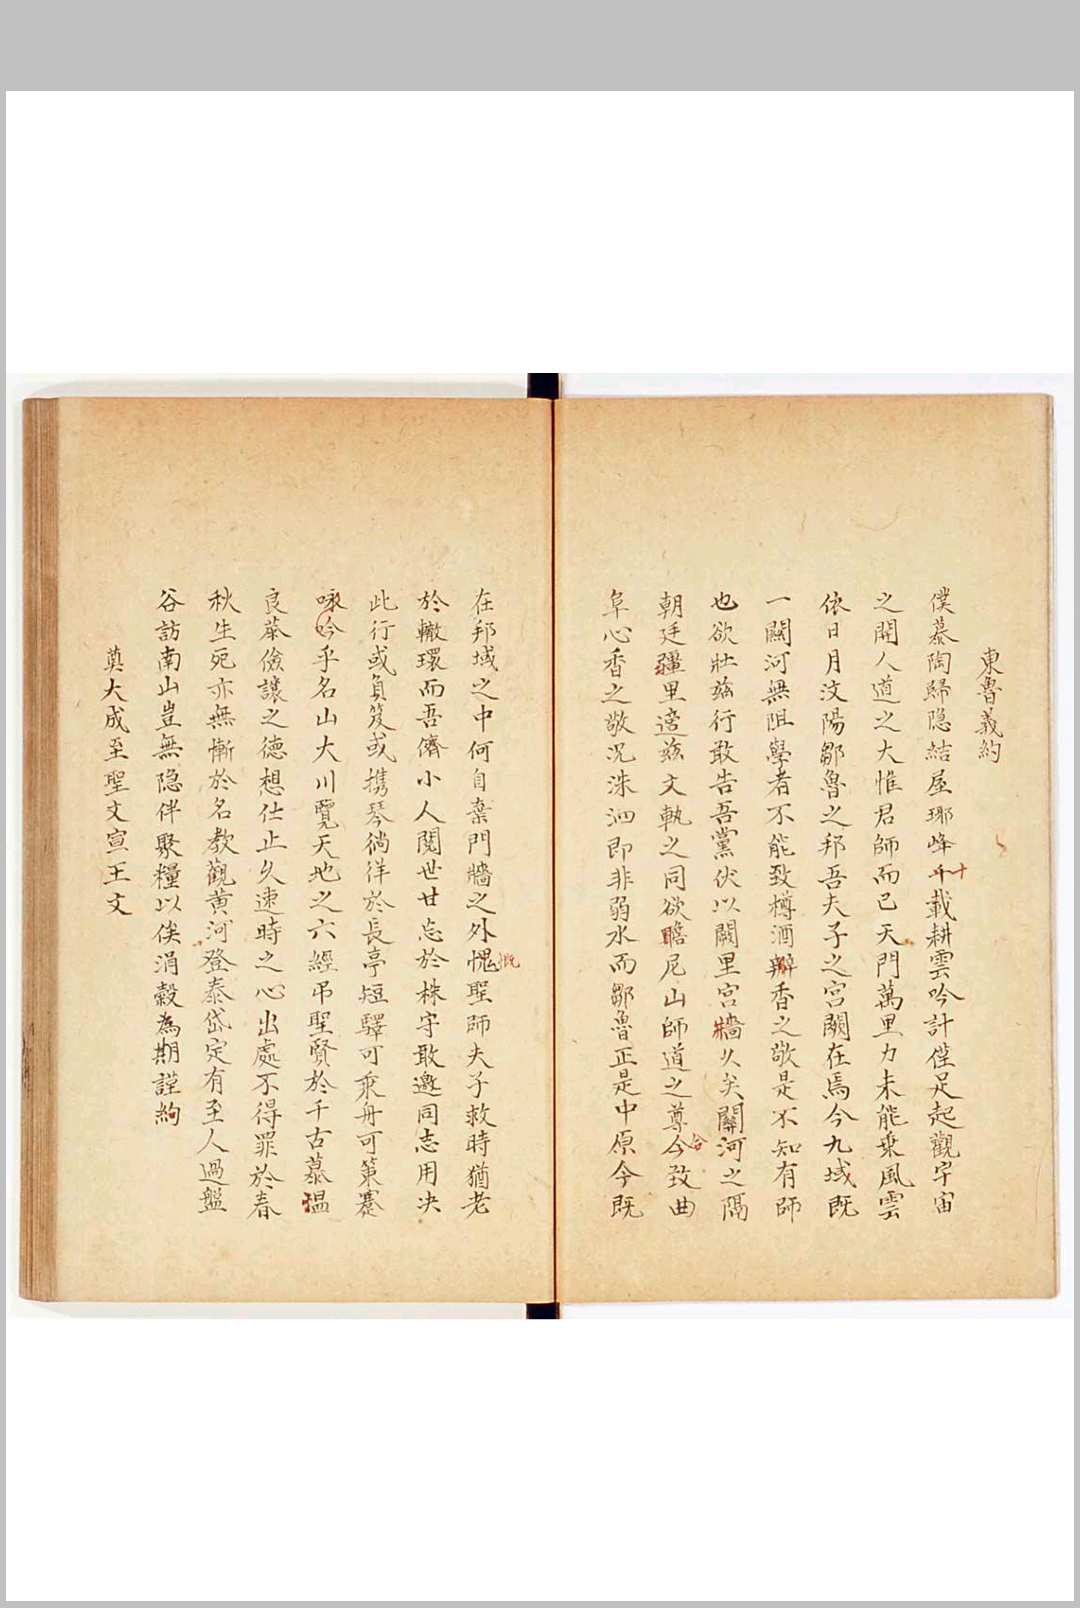 東魯義約
僕慕陶歸隐結屋瑯峰十載耕雲吟計僅足起觀宇宙
之間人道之大惟君師而已天門萬里力未能乗風雲
依日月汶陽鄒魯之邦吾夫子之宫闕在焉今九域既
一關河無阻學者不能致樽酒辦香之敬是不知有師
也欲壯兹行敢告吾黨伏以闕里宫牆乆矣關河之隔
朝廷疆里邊兹文軌之同欲瞻尼山師道之尊合致曲
阜心香之敬况洙泗即非弱水而鄒魯正是中原今既
在邦域之中何自棄門牆之外慨聖師夫子救時猶老
於轍環而吾儕小人閱世甘忘於株守敢邀同志用决
此行或負笈或携琴徜徉於長亭短驛可乗舟可策蹇
咏吟乎名山大川覽天地之六經弔聖賢於千古慕温
良恭儉讓之德想仕止久速時之心出處不得罪於春
秋生死亦無慚於名教觀黄河登泰岱定有至人過盤
谷訪南山豈無隐伴聚糧以俟涓穀為期謹約
奠大成至聖文宣王文